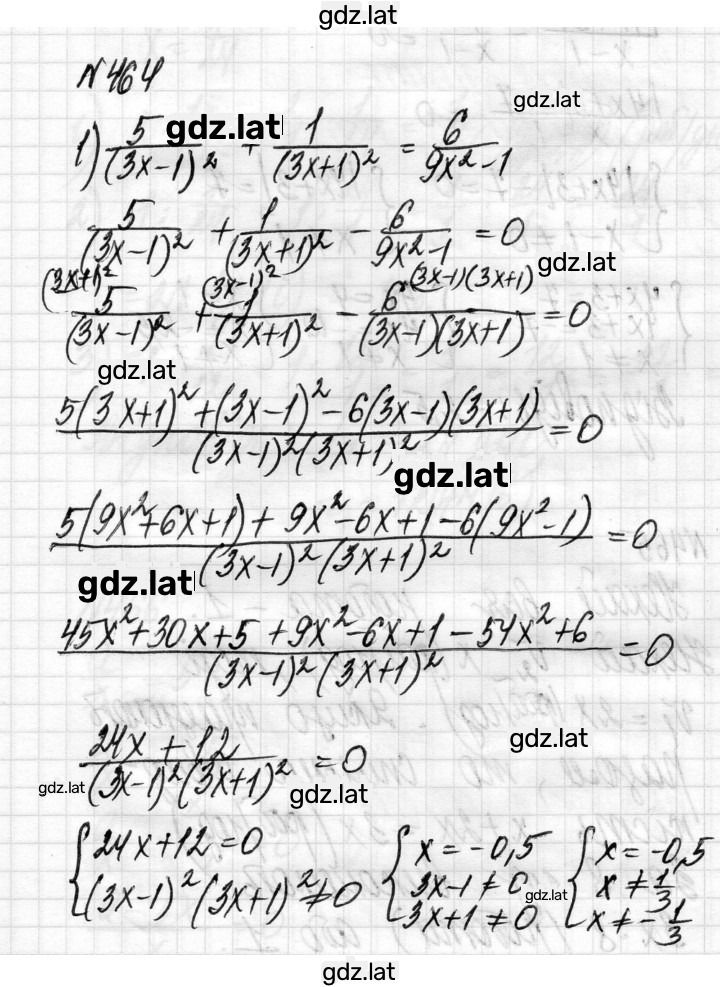 gdz.lat
№464
gdz.lat
1) 5/(3x-1)² + 1/(3x+1)² = 6/(9x²-1)
gdz.lat
5/(3x-1)² + 1/(3x+1)² - 6/(9x²-1) = 0
gdz.lat
(3x+1)² (3x-1)² (3x-1)(3x+1)
5/(3x-1)² + 1/(3x+1)² - 6/((3x-1)(3x+1)) = 0
gdz.lat
(5(3x+1)²+(3x-1)²-6(3x-1)(3x+1))/((3x-1)²(3x+1)²) = 0
gdz.lat
(5(9x²+6x+1)+9x²-6x+1-6(9x²-1))/((3x-1)²(3x+1)²) = 0
gdz.lat
(45x²+30x+5+9x²-6x+1-54x²+6)/((3x-1)²(3x+1)²) = 0
gdz.lat
(24x+12)/((3x-1)²(3x+1)²) = 0
gdz.lat gdz.lat
{24x+12=0 {x=-0,5 {x=-0,5
(3x-1)²(3x+1)²≠0 3x-1≠0 x≠1/3
gdz.lat
3x+1≠0 x≠-1/3
gdz.lat